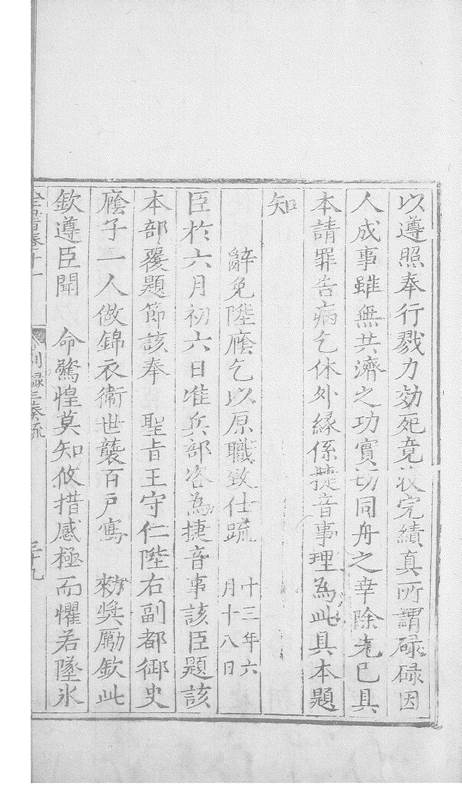 以遵照奉行戮力効死竟收完績真所謂碌碌因
人成事雖無共濟之功實切同舟之幸除先已具
本請罪告病乞休外緣係捷音事理為此具本題
知
辭免陞廕乞以原職致仕疏 十三年六月十八日
臣於六月初六日准兵部咨為捷音事該臣題該
本部覆題節該奉 聖旨王守仁陞右副都御史
廕子一人做錦衣衛世襲百戶寫 勑奬勵欽此
欽遵臣聞 命驚惶莫知攸措感極而懼若墜氷
全書卷十一 别録三奏疏 三十九